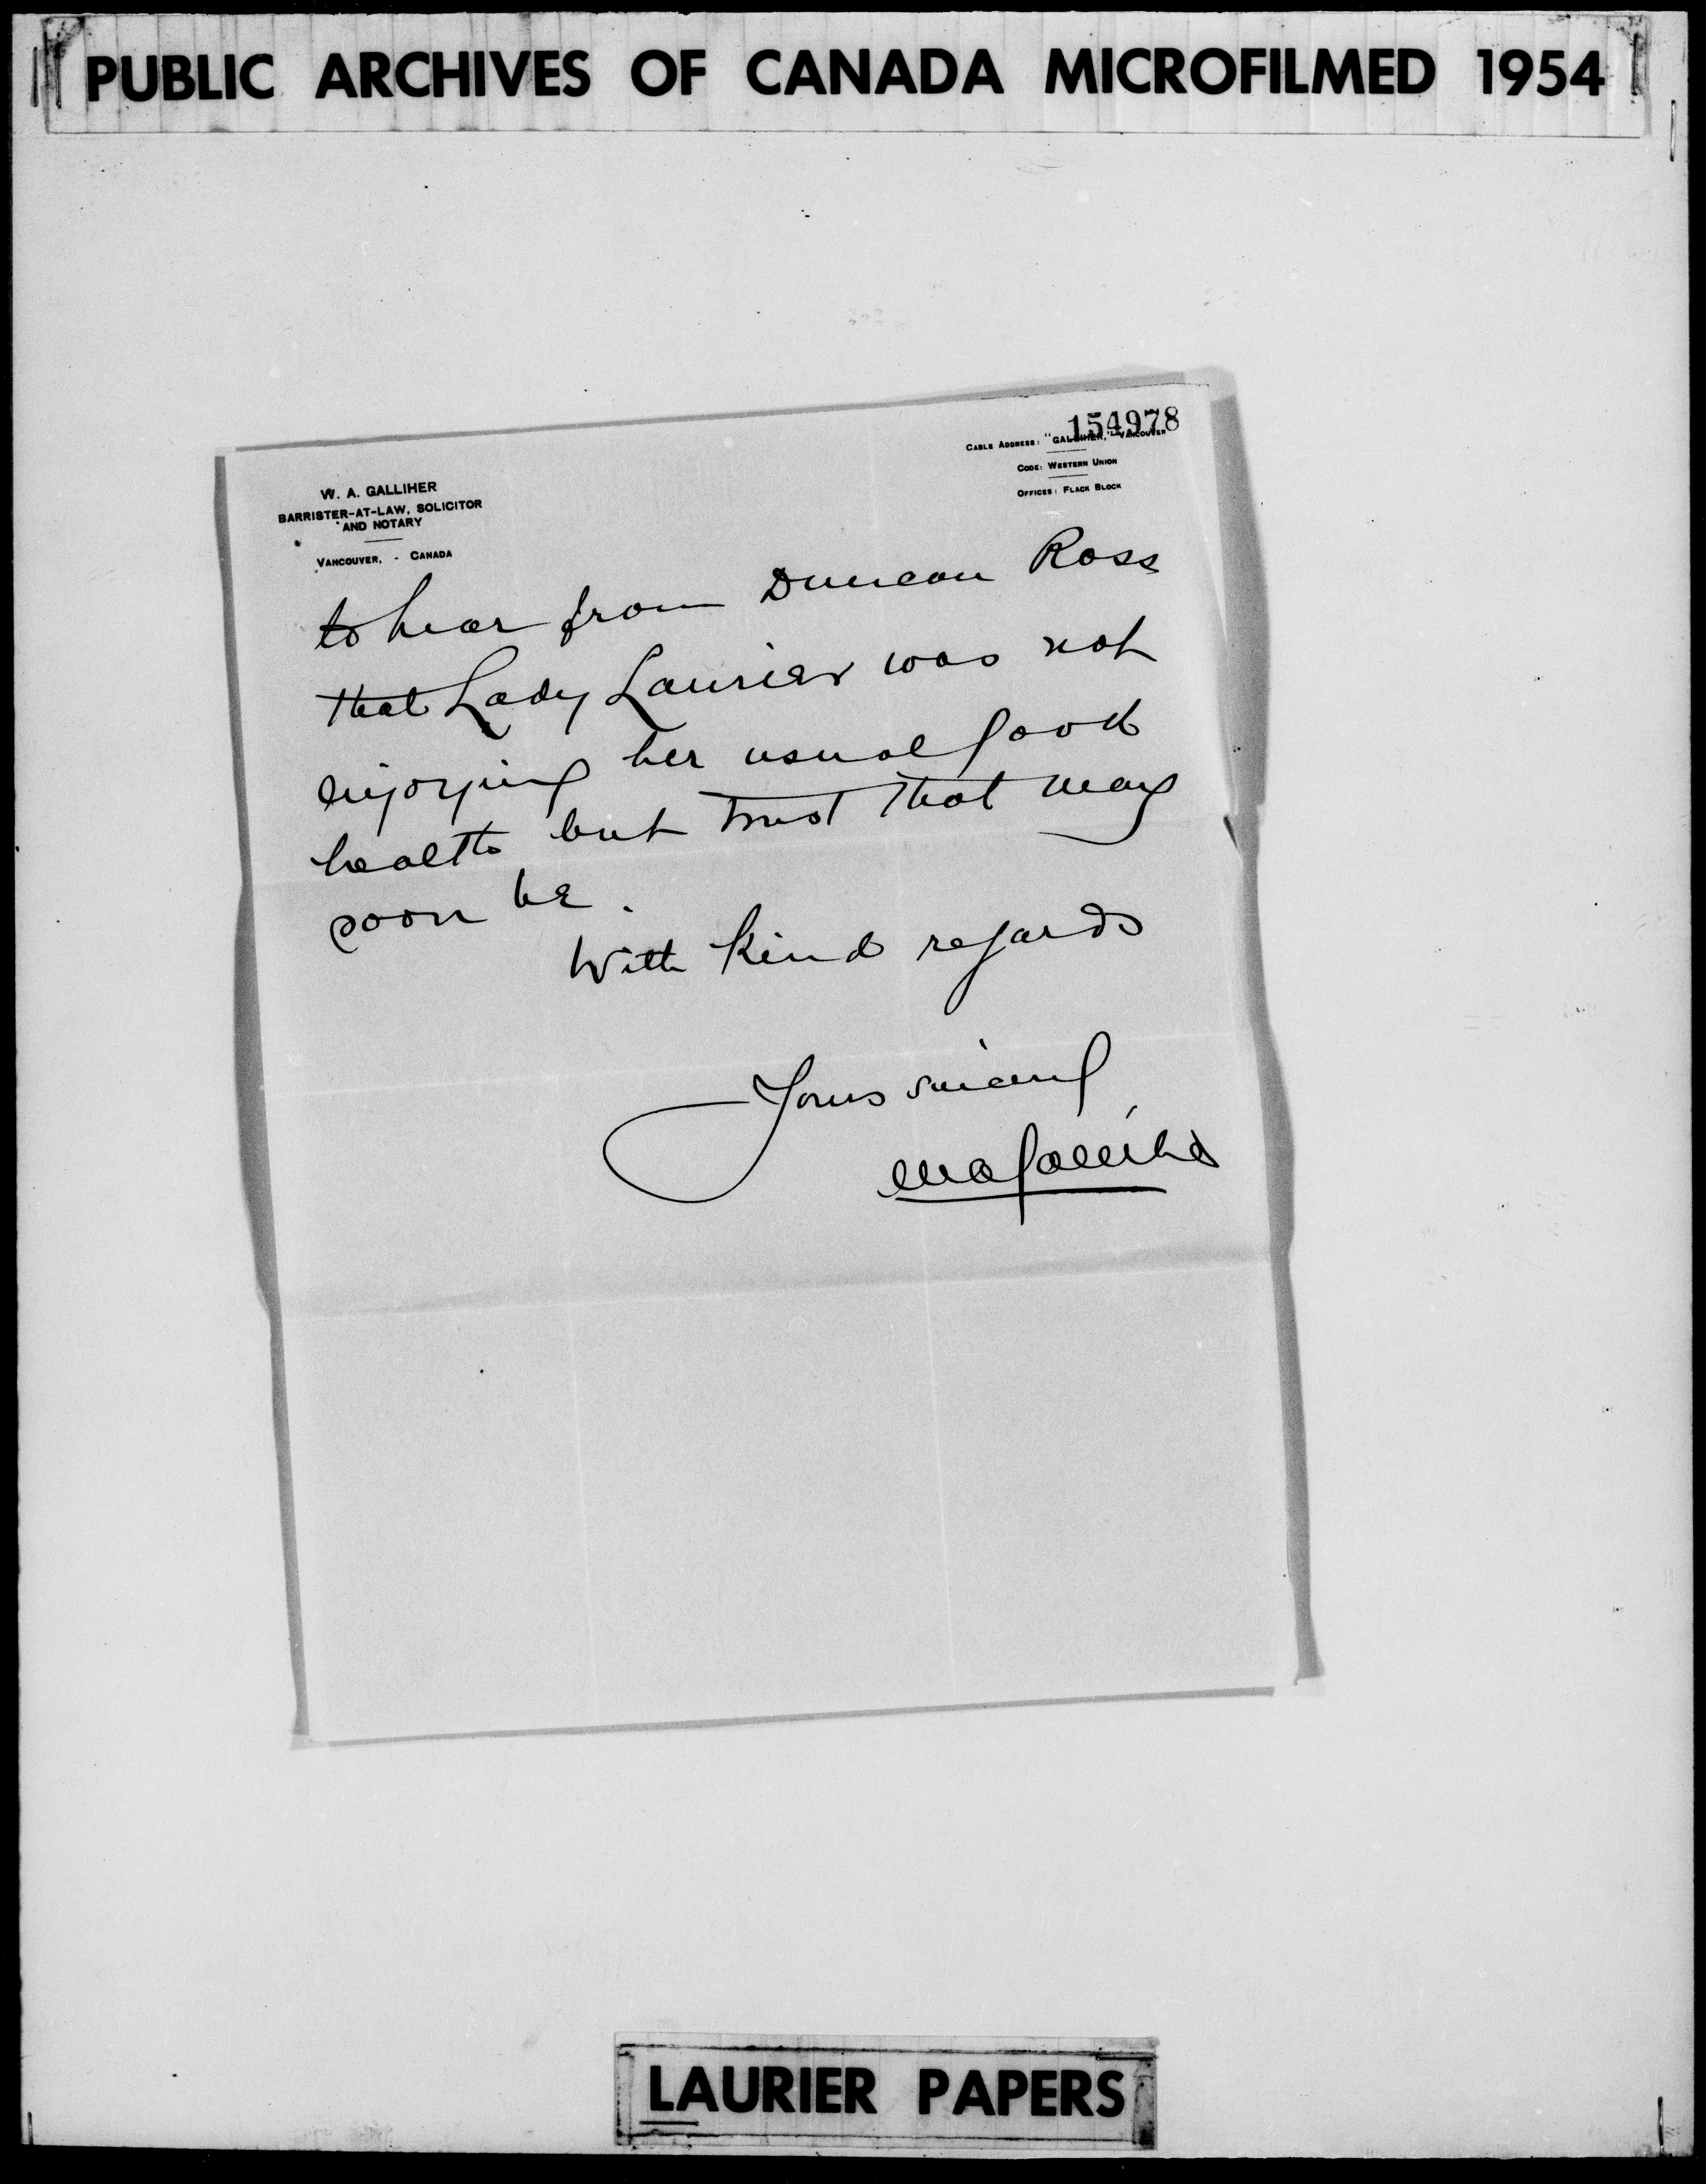 PUBLIC ARCHIVES OF CANADA MICROFILMED 1954
154978
CABLE ADDRESS: "GALLIHER," VANCOUVER
CODE: WESTERN UNION
OFFICES: FLACK BLOCK
W. A. GALLIHER
BARRISTER-AT-LAW, SOLICITOR
AND NOTARY
VANCOUVER, - CANADA
to hear from Duncan Ross
that Lady Laurier was not
enjoying her usual good
health but trust that may
soon be.
With kind regards
Yours sincerely
W A Galliher
LAURIER PAPERS